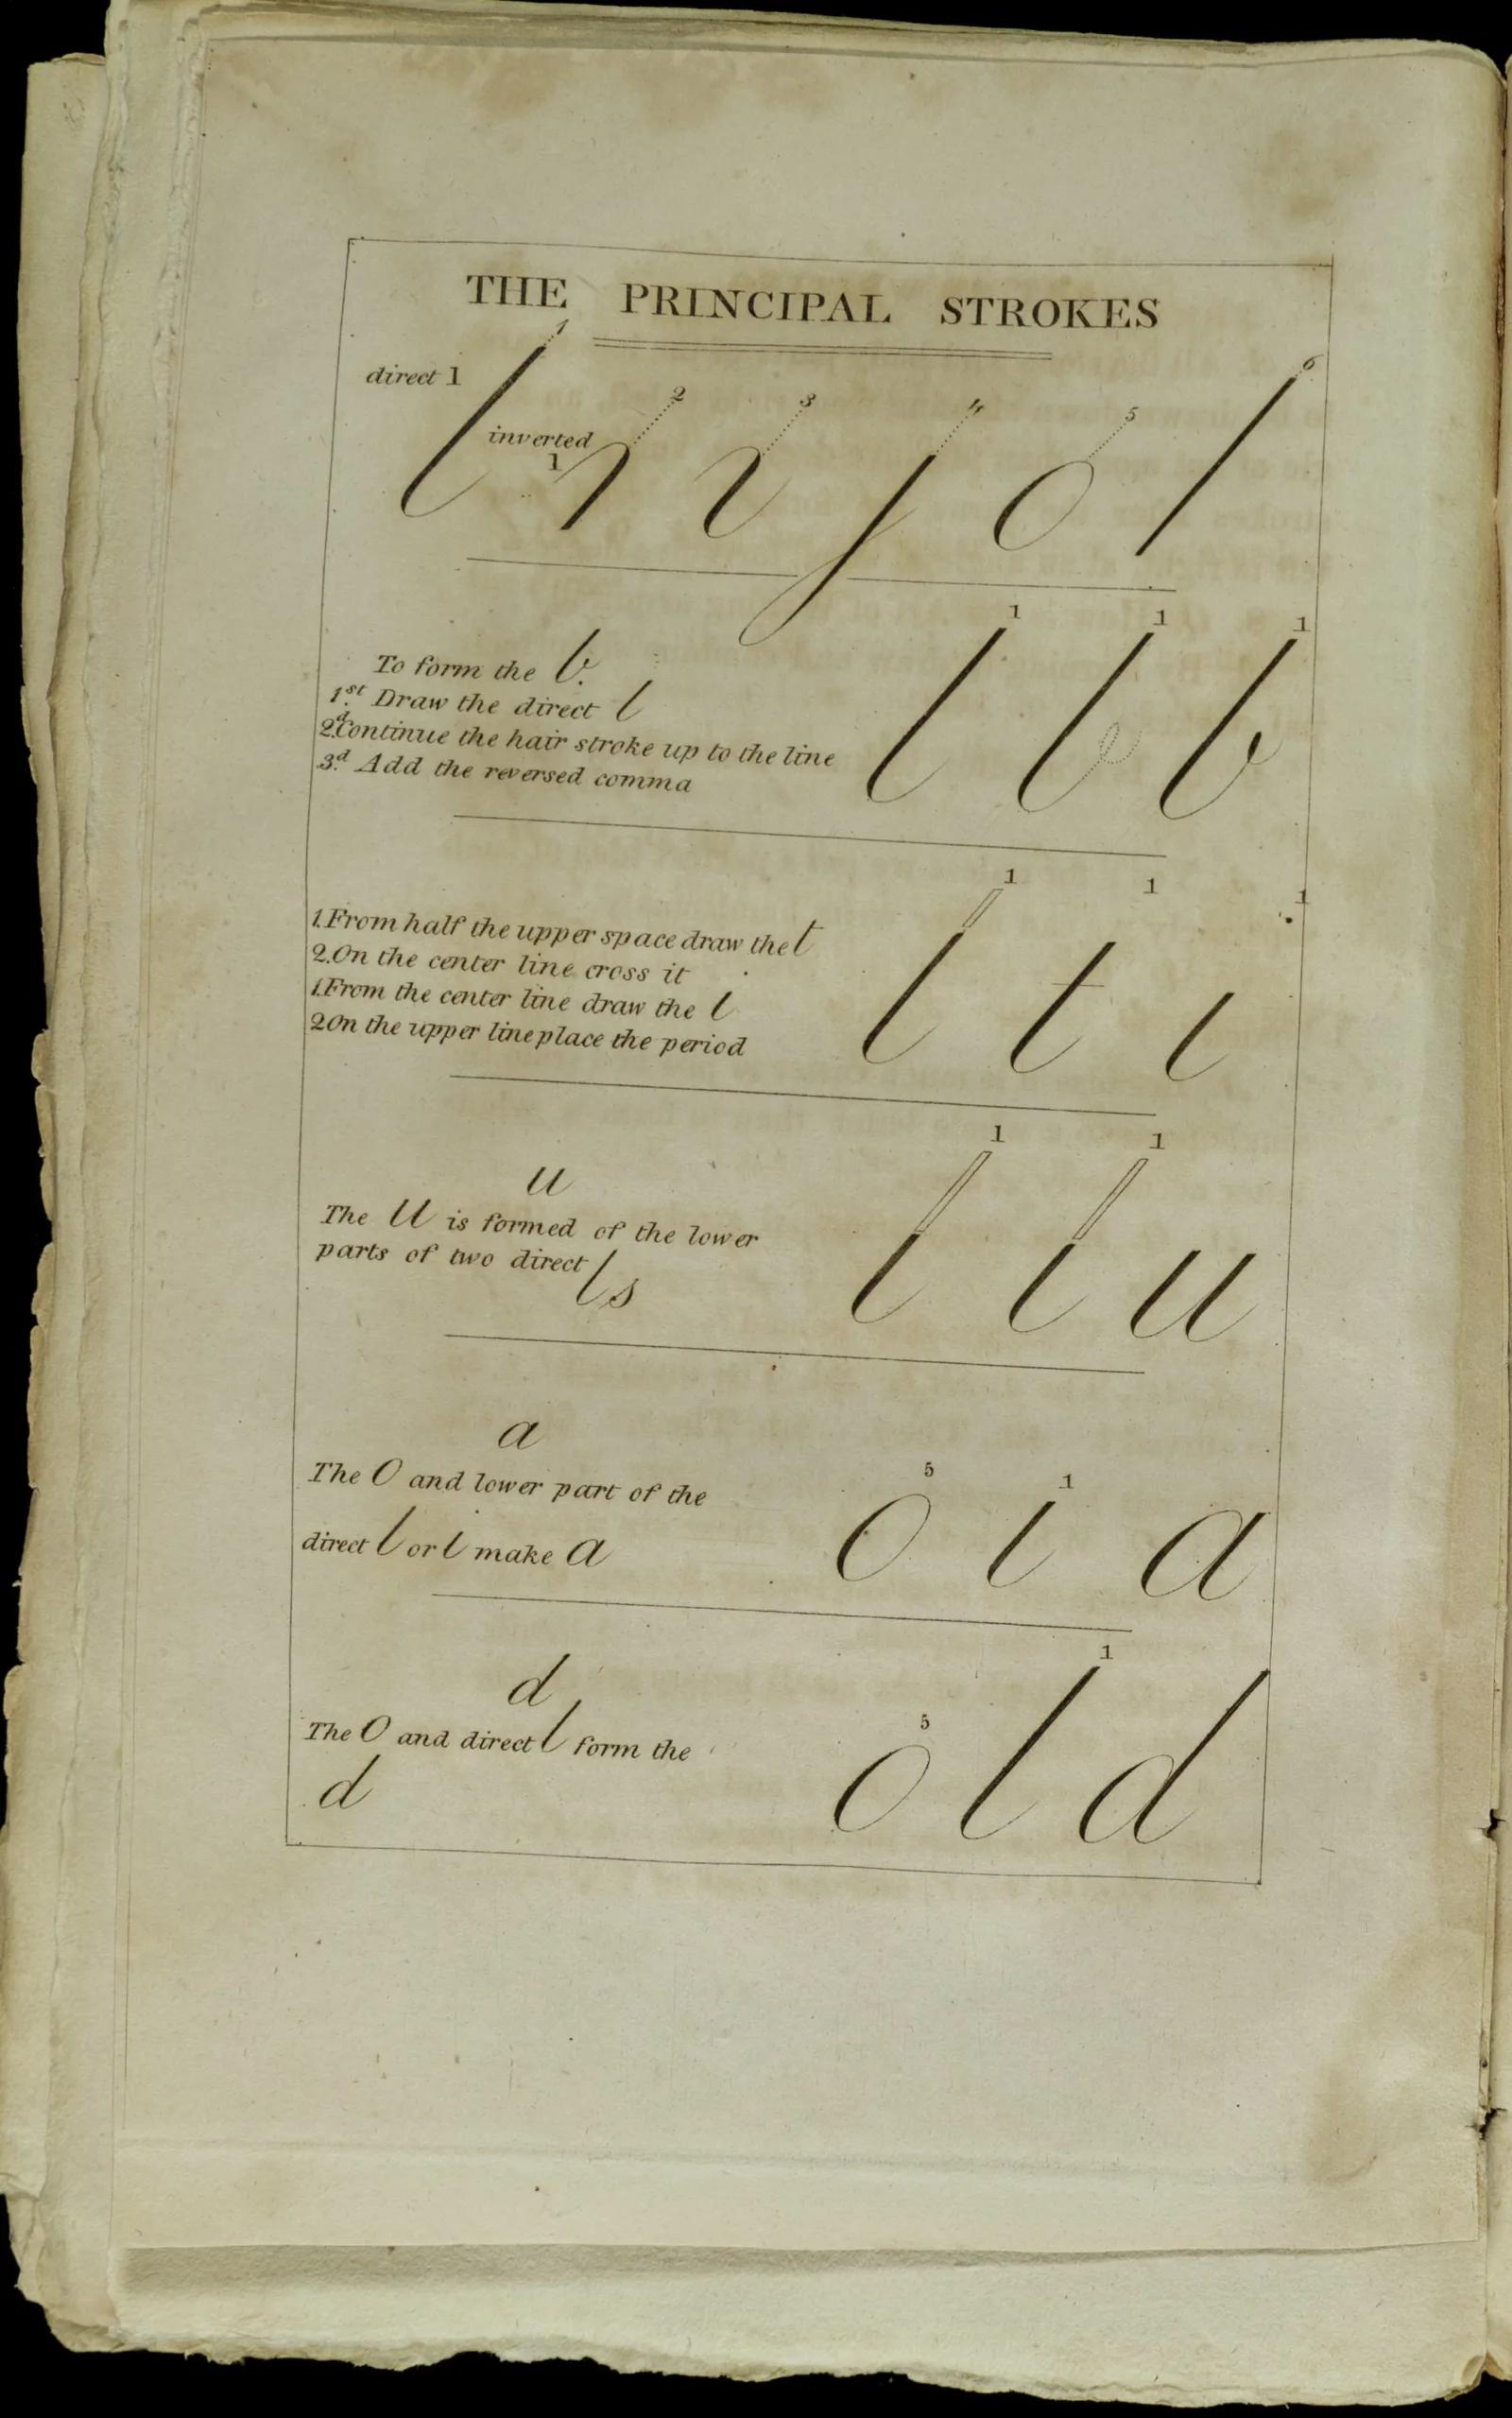 THE PRINCIPAL STROKES
1 2 3 4 5 6
direct 1
inverted
1
l j o
1 1 1
To form the b.
1.st Draw the direct l
2.d Continue the hair stroke up to the line
3.d Add the reversed comma
l b b
1 1 1
1.From half the upper space draw the t
2.On the center line cross it
1.From the center line draw the i
2.On the upper line place the period
l t i
1 1
u
The u is formed of the lower
parts of two direct ls
l l u
a
The O and lower part of the
direct l or i make a
5 1
o i a
d
The O and direct l form the
d
5 1
o l d